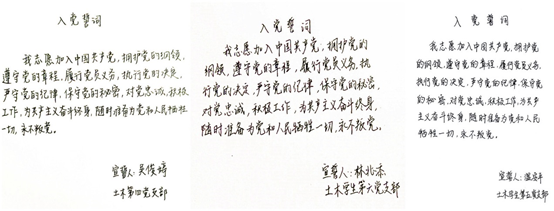 入党誓词
我志愿加入中国共产党，拥护党的纲领，
遵守党的章程，履行党员义务，执行党的决定，
严守党的纪律，保守党的秘密，对党忠诚，积极
工作，为共产主义奋斗终身，随时准备为党和人民牺牲一
切，永不叛党。
宣誓人：吴俊
土木第四党支部
入党誓词
我志愿加入中国共产党，拥护党的
纲领，遵守党的章程，履行党员义务，执
行党的决定，严守党的纪律，保守党的秘密，
对党忠诚，积极工作，为共产主义奋斗终身，
随时准备为党和人民牺牲一切，永不叛党。
宣誓人：林兆
土木学生第六党支部
入党誓词
我志愿加入中国共产党，拥护党
的纲领，遵守党的章程，履行党员义务，
执行党的决定，严守党的纪律，保守党
的秘密，对党忠诚，积极工作，为共产
主义奋斗终身，随时准备为党和人民
牺牲一切，永不叛党。
宣誓人：
土木学生第五党支部